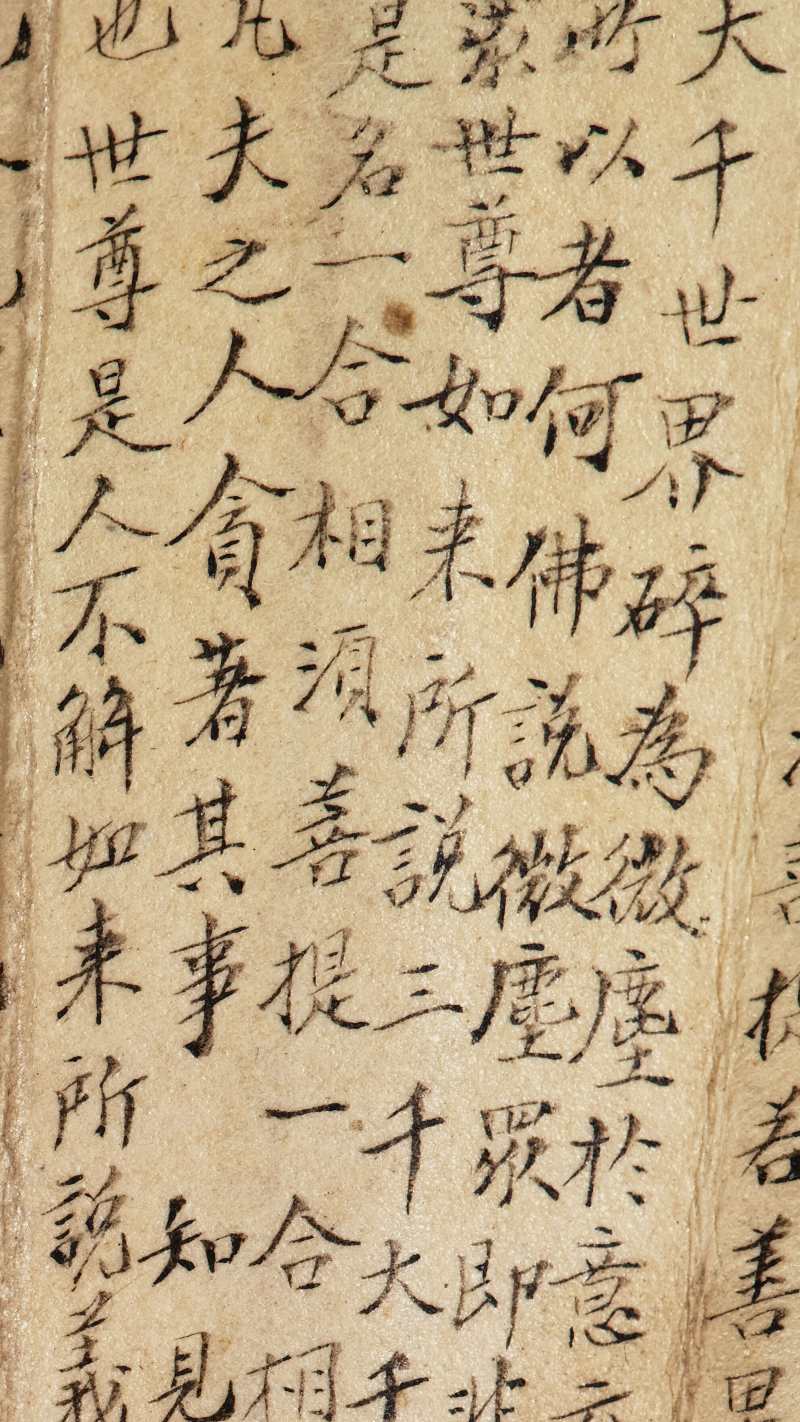 提若善男
大千世界碎為微塵於意云
所以者何佛說微塵眾即非
眾世尊如来所說三千大千
是名一合相須菩提一合相
凡夫之人貪著其事知見
也世尊是人不解如来所說義